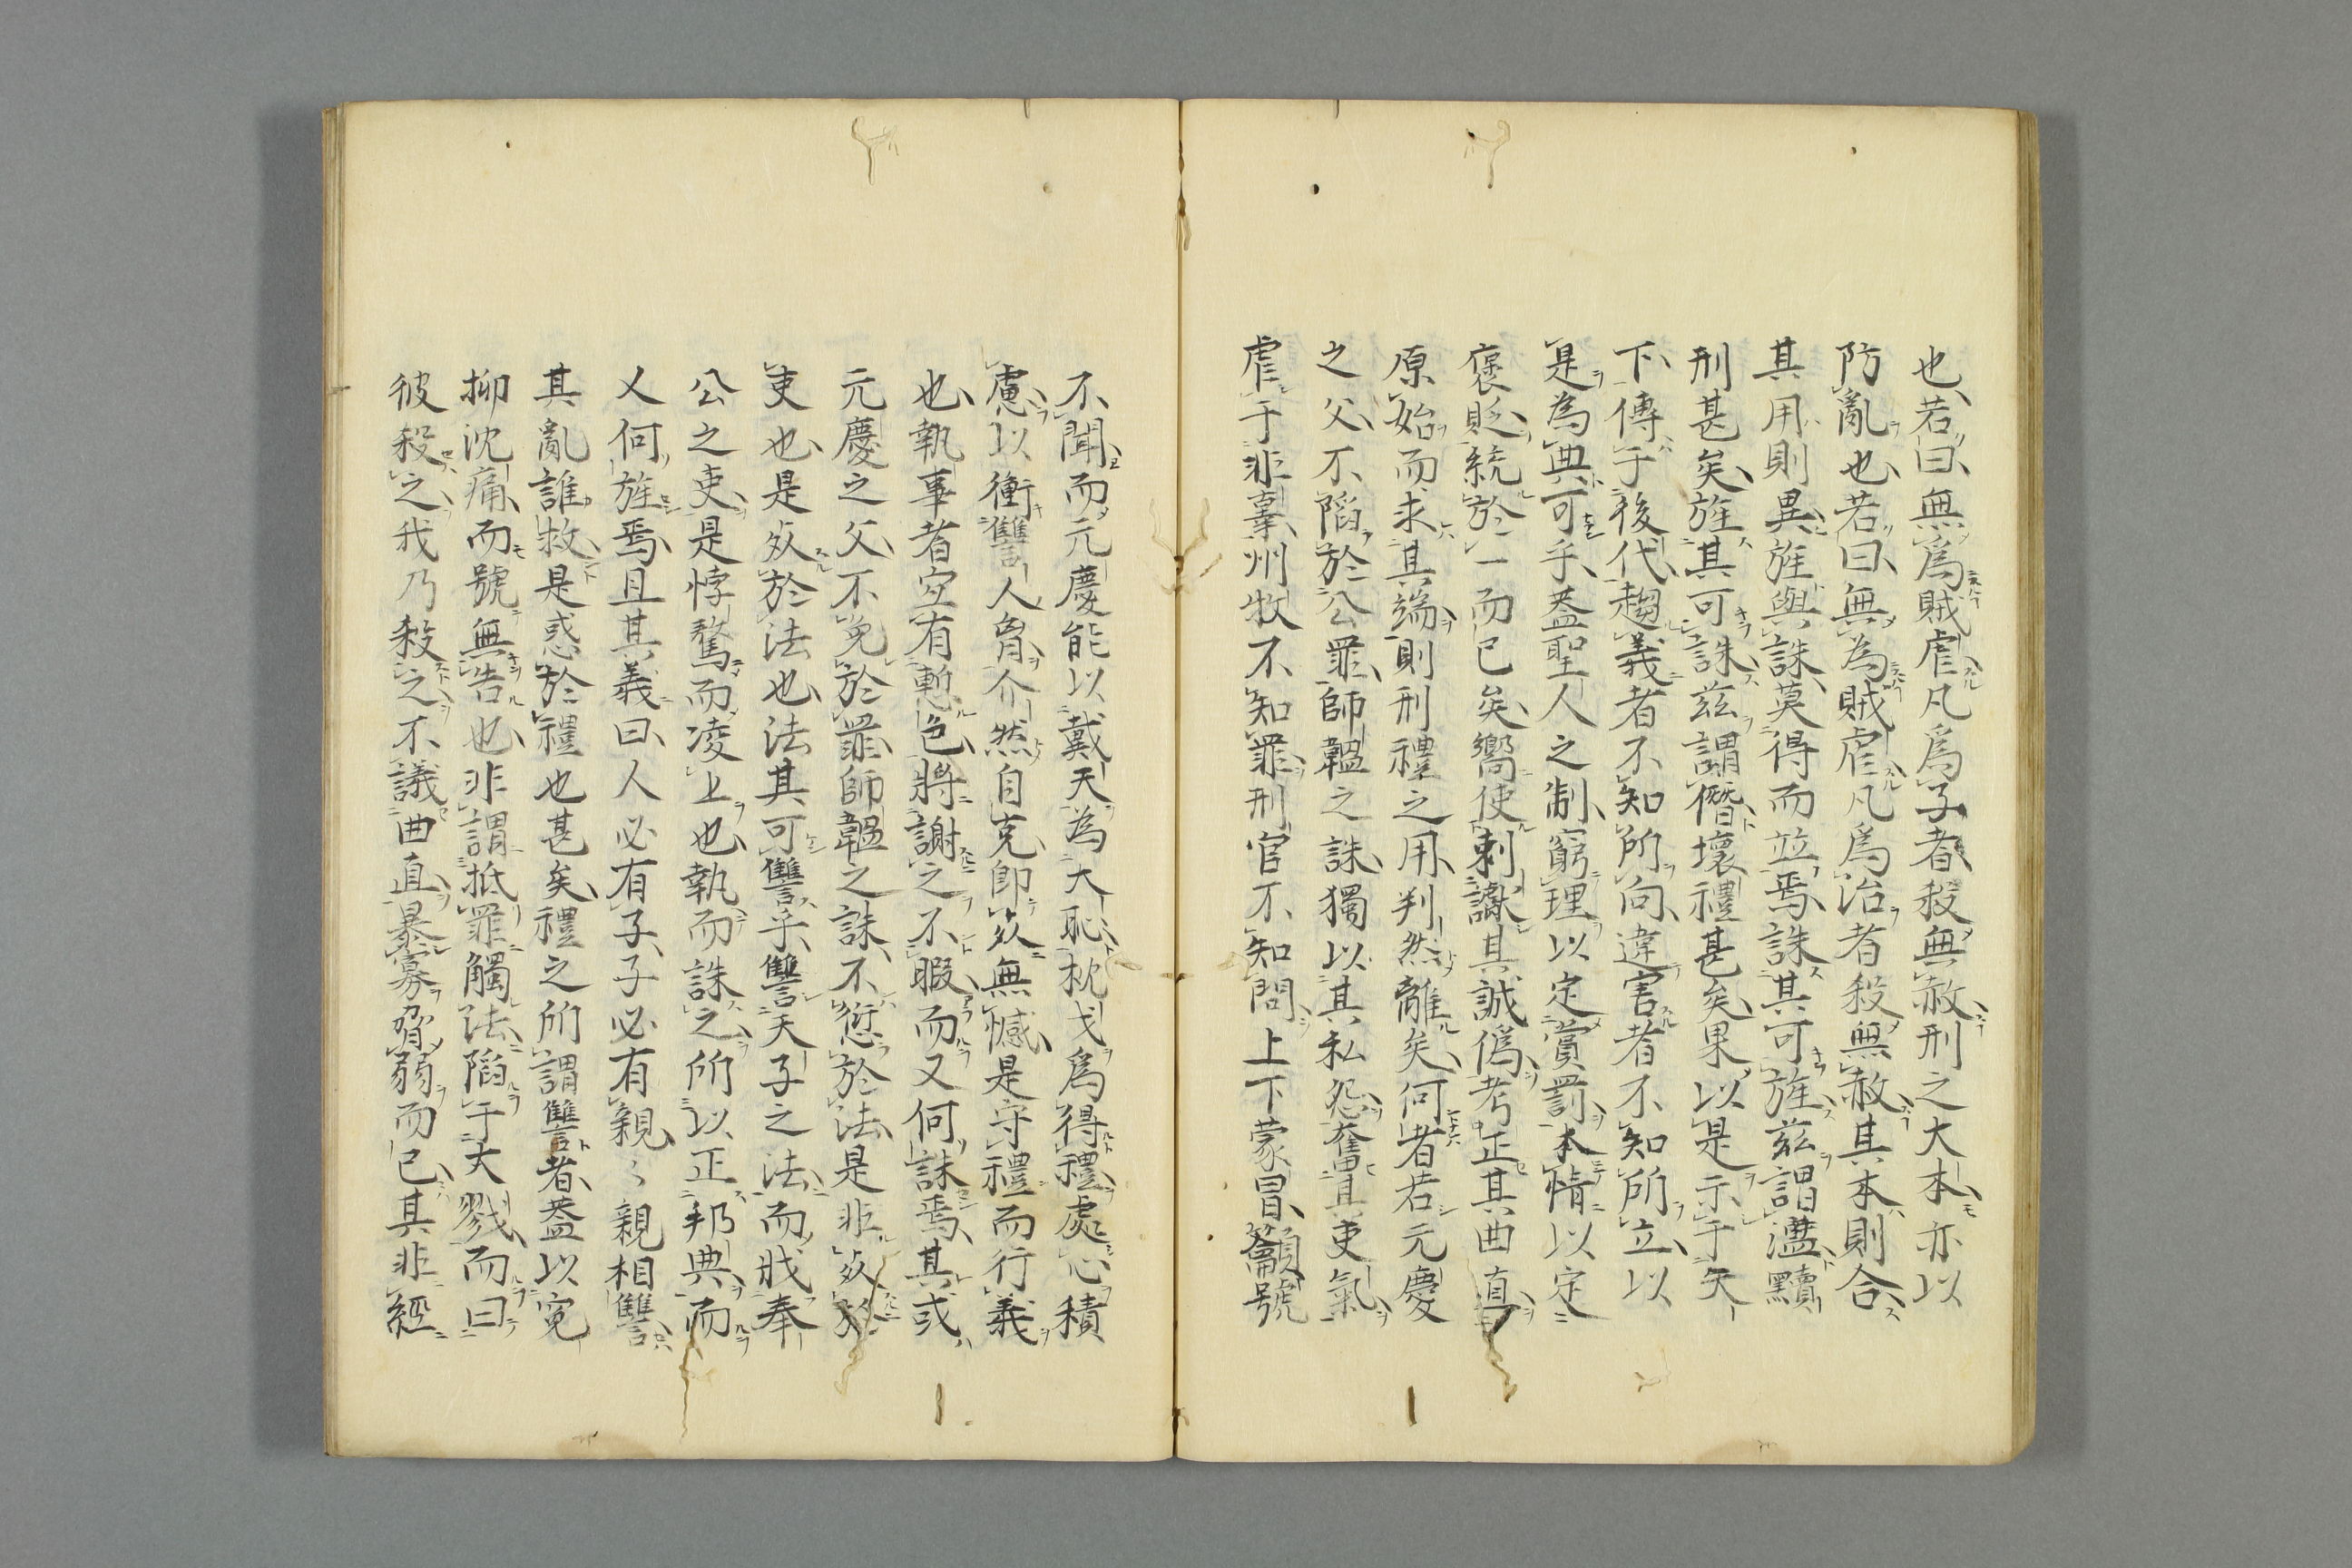 也若曰無爲賊虐凡爲子者殺無赦刑之大本亦以
防亂也若曰無為賊虐凡爲治者殺無赦其本則合
其用則異旌與誅莫得而並焉誅其可旌茲謂濫黷
刑甚矣旌其可誅茲謂僭壞禮甚矣果以是示于天
下傳于後代趨義者不知所向違害者不知所立以
是為典可乎盖聖人之制窮理以定賞罰本情以定
褒貶統於一而已矣嚮使刺讞其誠僞考正其曲直
原始而求其端則刑禮之用判然離矣何者若元慶
之父不陷於公罪師韞之誅獨以其私怨奮其吏氣
虐于非辜州牧不知罪刑官不知問上下蒙冒籲號
不聞而元慶能以戴天為大恥枕戈爲得禮處心積
慮以衝讐人胷介然自克即死無憾是守禮而行義
也執事者宜有慙色將謝之不暇而又何誅焉其或
元慶之父不免於罪師韞之誅不愆於法是非死於
吏也是死於法也法其可讐乎讐天子之法而戕奉
公之吏是悖驁而凌上也執而誅之所以正邦典而
又何旌焉且其義曰人必有子子必有親〻親相讐
其亂誰救是惑於禮也甚矣禮之所謂讐者盖以冤
抑沈痛而號無告也非謂抵罪觸法陷于大戮而曰
彼殺之我乃殺之不議曲直暴寡脅弱而已其非經